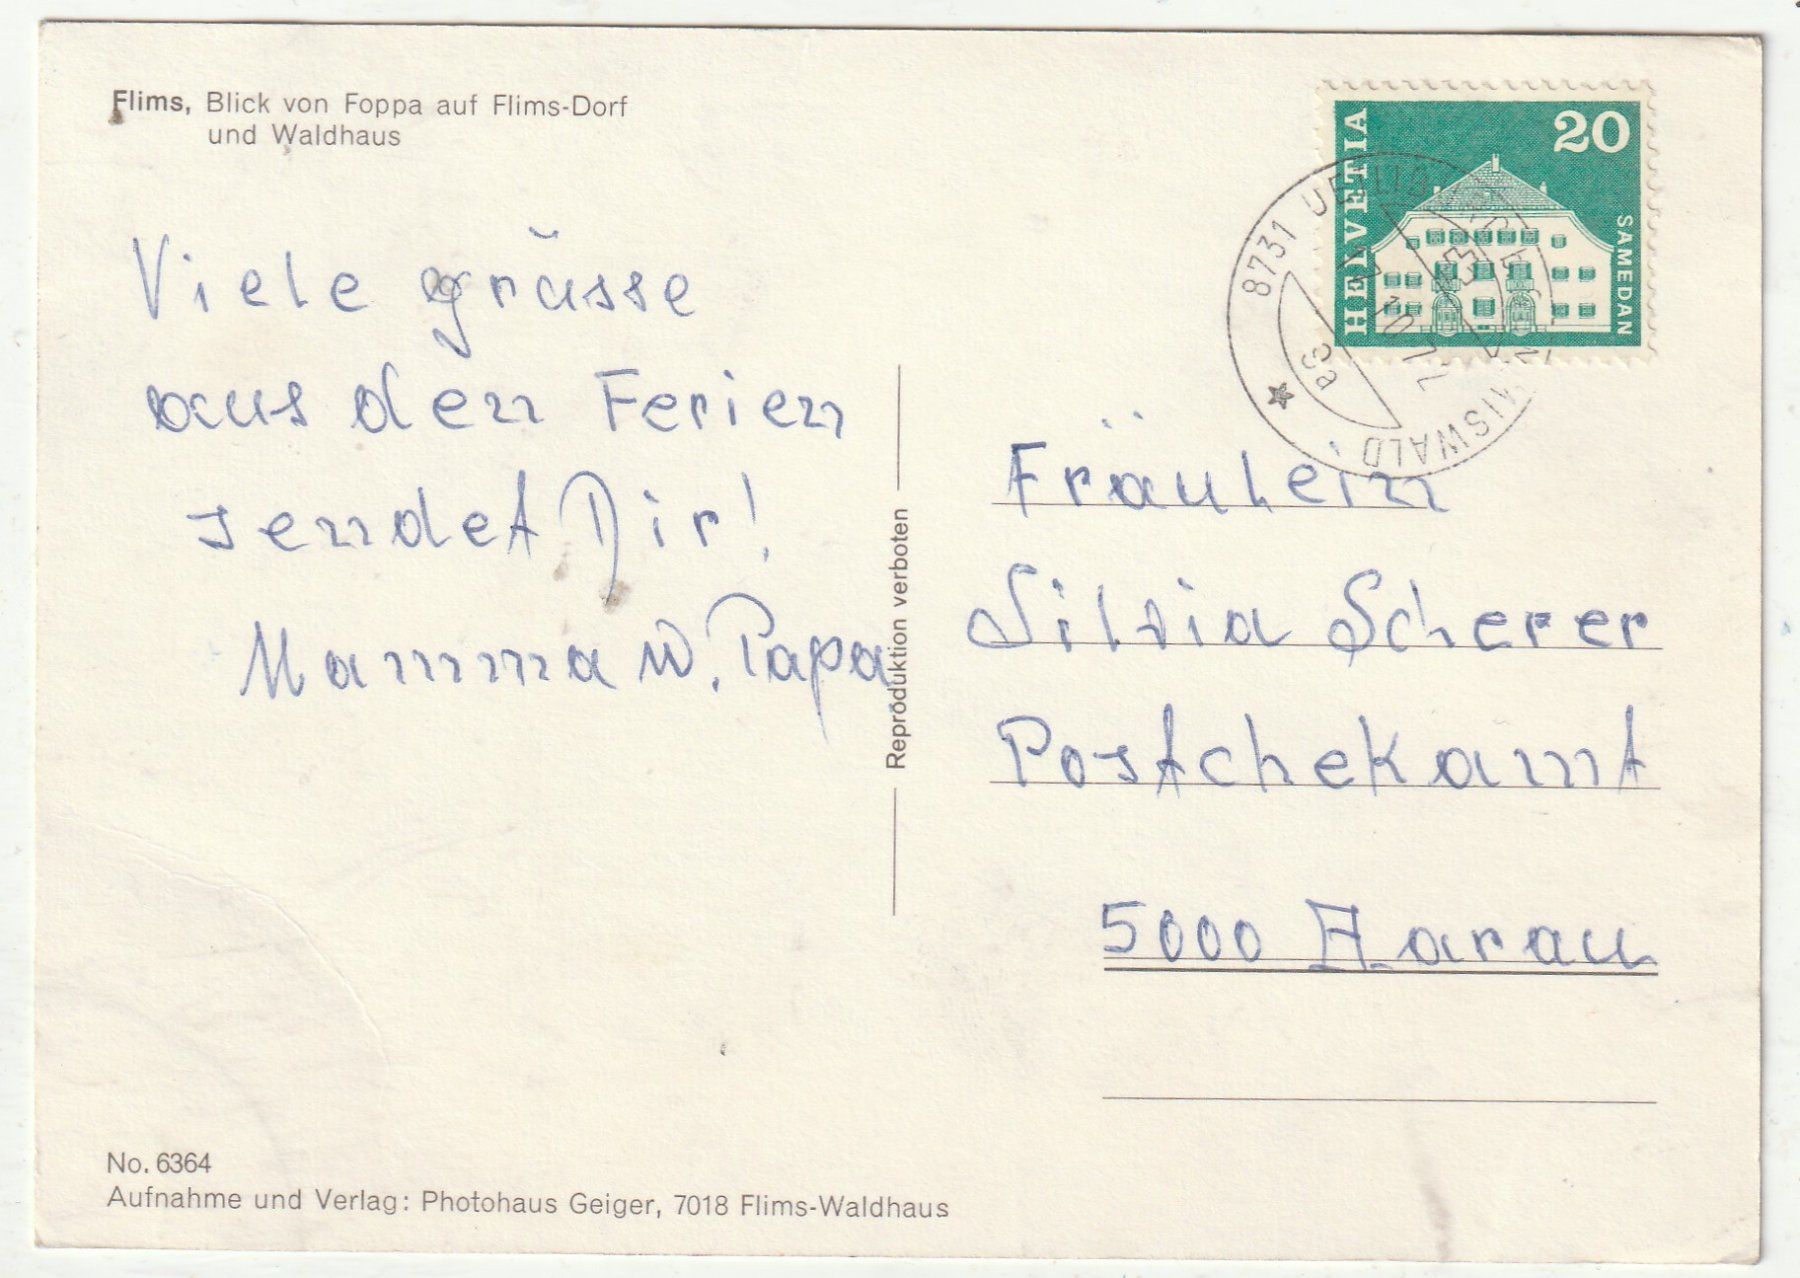 Flims, Blick von Foppa auf Flims-Dorf
und Waldhaus
Viele grüsse
aus den Ferien
sendet Dir!
Mamma u. Papa
Reproduktion verboten
HELVETIA
20
SAMEDAN
8731
7.10.72
Fräulein
Silvia Scherer
Postchekamt
5000 Aarau
No. 6364
Aufnahme und Verlag: Photohaus Geiger, 7018 Flims-Waldhaus